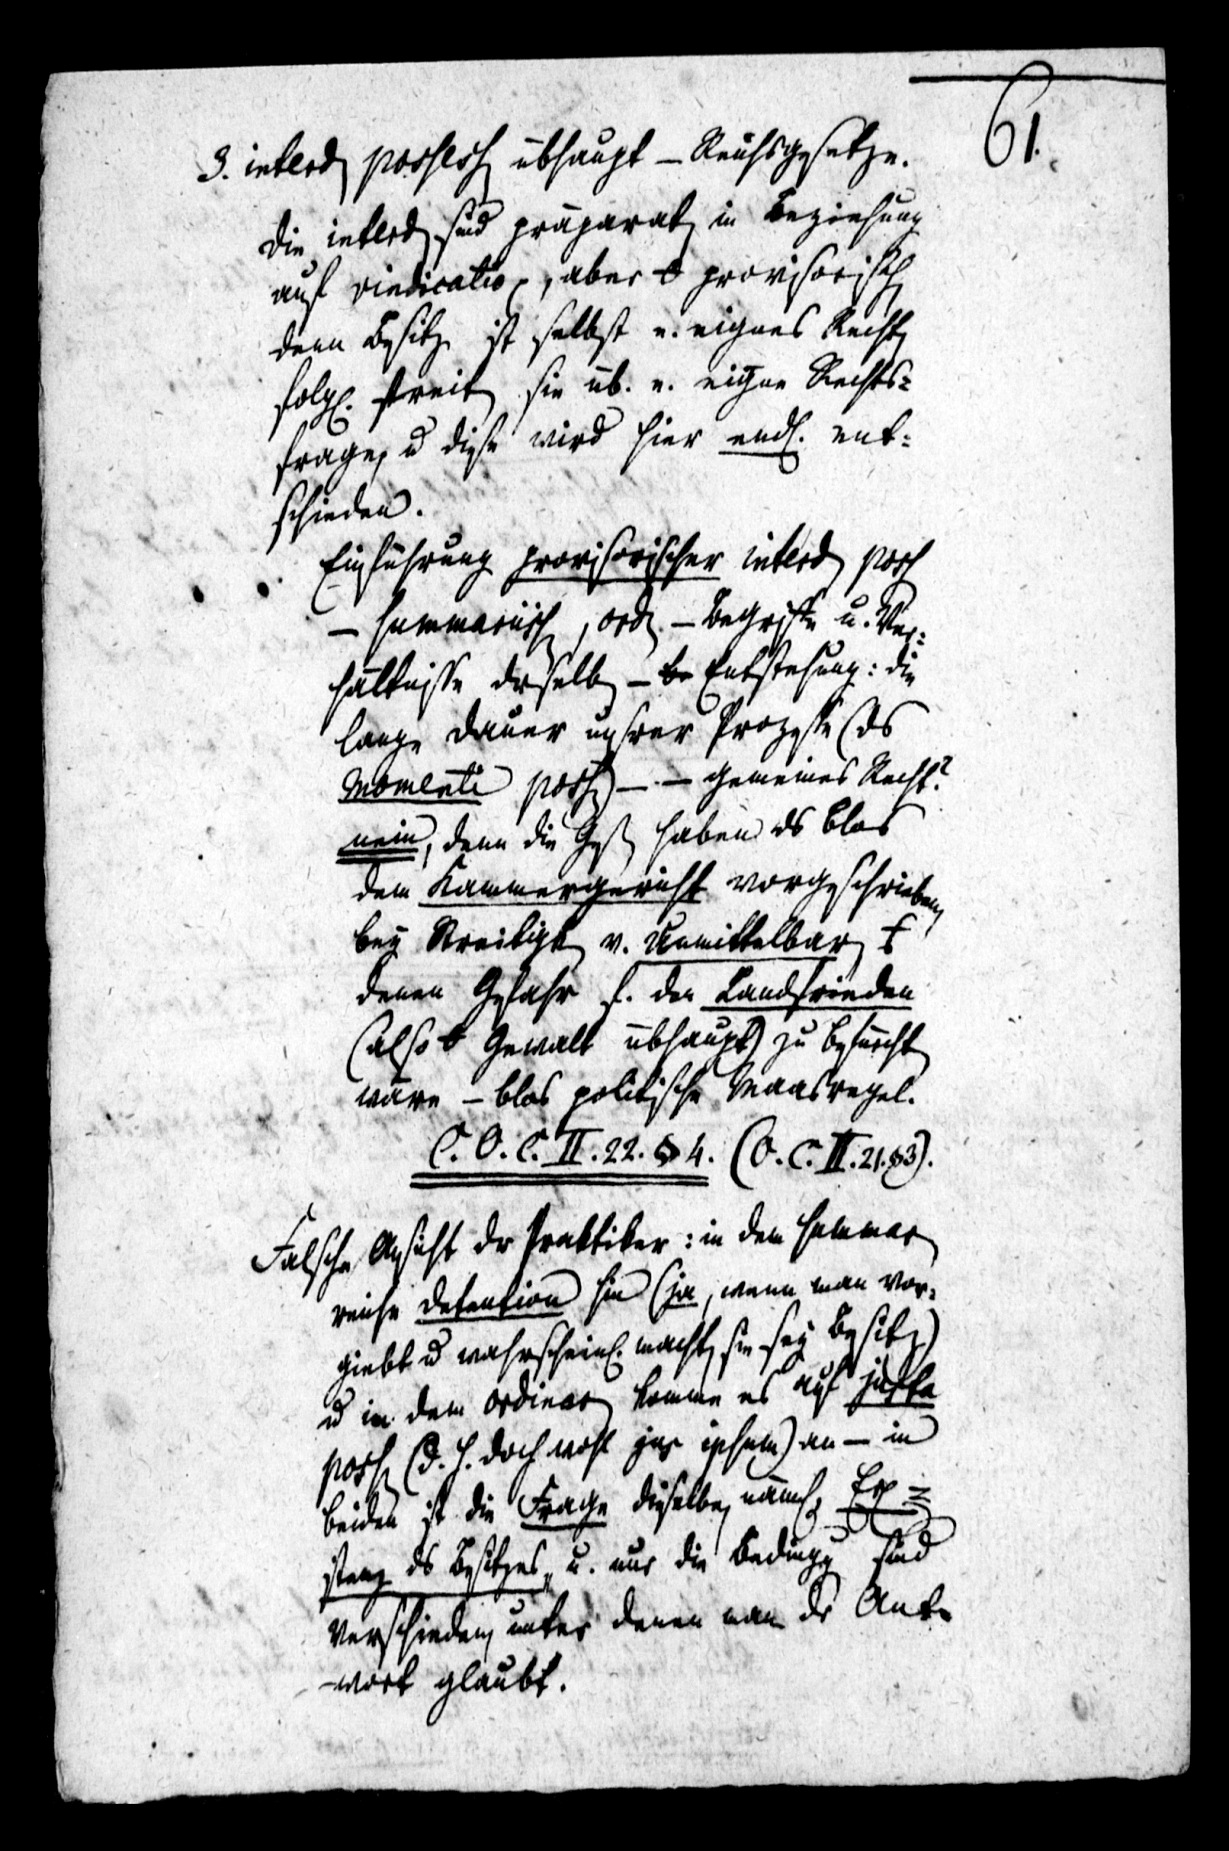 61.
3. interd possess übhaupt – Reichsgesetze.
Die interd sind präparat in Beziehung
auf vindicatio, aber provisorisch
denn Besitz ist selbst e. eignes Recht
folgl. streit sie üb. e. eigne Rechts=
frage, u diese wird hier endl. ent=
schieden.
Einführung provisorischer interd poss
– summariisch, ord – Begriffe u. Ver=
hältnisse drselb – Entstehung: die
lange Dauer unsrer Prozesse (ds
momenti poss) – – gemeines Recht?
nein, denn die Ges haben ds blos
dem Kammergericht vorgeschrieben
bey Streitigk v. Unmittelbar
denen Gefahr f. den Landfrieden
(also Gewalt übhaupt) zu befürcht
wäre – blos politische Maasregel.
C. O. C. II. 22. § 4. (O. C. II. 21. § 3).
Falsche Ansicht dr Praktiker: in dem summar
reiche Detention hin (ja, wenn man vor=
giebt u wahrscheinl. macht, sie sey Besitz)
u in dem ordinar komme es auf justa
poss (d. h. doch wohl jus ipsum) an – in
beiden ist die Frage dieselbe, nämlich, Exi=
stenz ds Besitzes, u. nur die Beding sind
verschieden, unter denen man dr Ant=
wort glaubt.